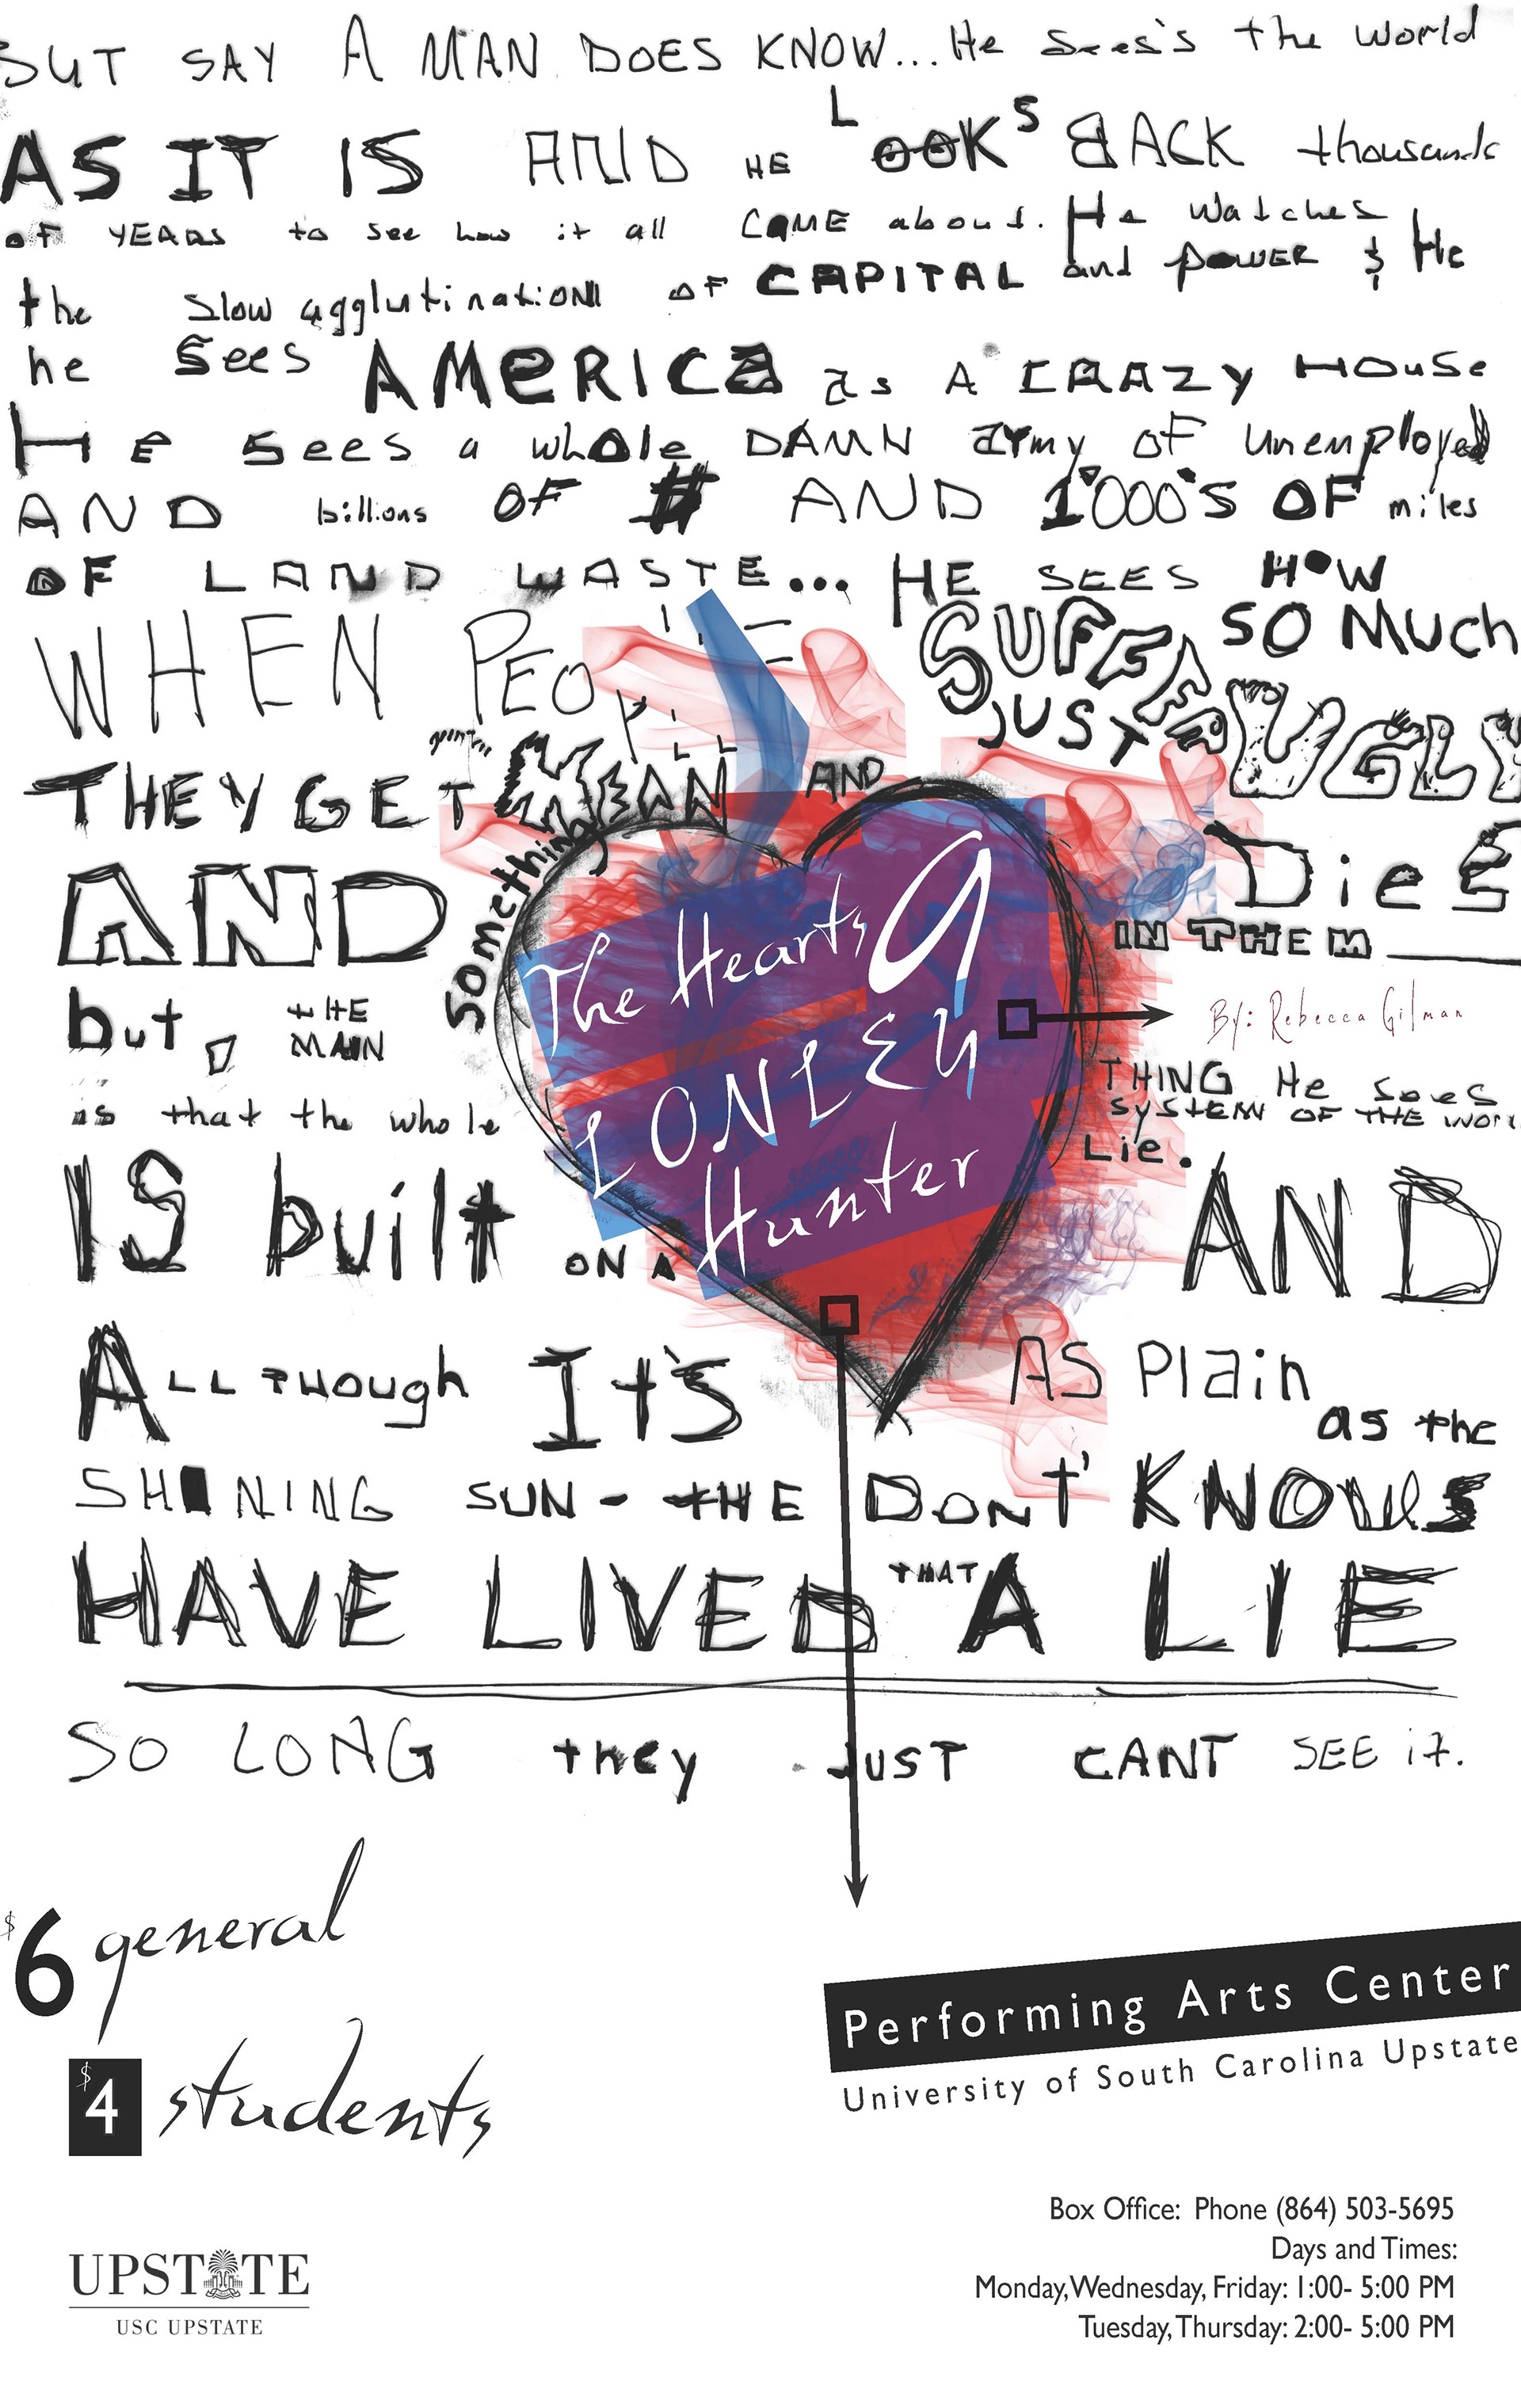 BUT SAY A MAN DOES KNOW... He Sees's the world
AS IT IS AND HE LOOKS BACK thousands
OF YEARS to see how it all CAME about. He watches
the slow agglutination OF CAPITAL and POWER & He
he sees AMeRICa as A CRAZY House
HE sees a whole DAMN army OF unemployed
AND billions OF # AND 1'000'S OF miles
OF LAND WASTE... HE SEES HOW
WHEN PEOPLE SUFFER SO MUCH
THEY GET MEAN AND JUST UGLY
AND something Dies
IN THEM
but, THE MAIN THING He sees
is that the whole SYSTEM OF THE WOR
IS built ON A Lie. AND
ALLTHOUgh It's AS Plain as the
SHINING SUN - THE DON'T KNOWS
HAVE LIVED THAT A LIE
SO LONG they JUST CANT SEE it.
The Hearts a
LONLEY
Hunter
By: Rebecca Gilman
$6 general
$4 students
Performing Arts Center
University of South Carolina Upstate
Box Office: Phone (864) 503-5695
Days and Times:
Monday, Wednesday, Friday: 1:00- 5:00 PM
Tuesday, Thursday: 2:00- 5:00 PM
UPSTATE
USC UPSTATE